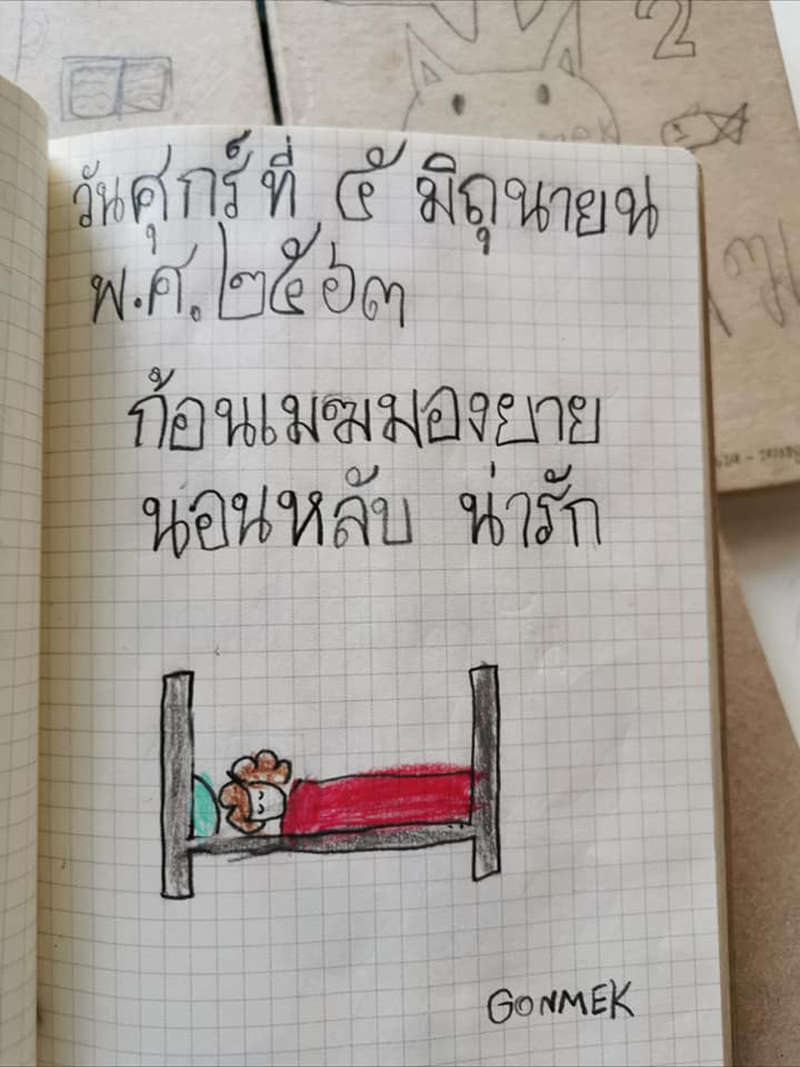 วันศุกร์ที่ ๕ มิถุนายน
พ.ศ. ๒๕๖๓
ก้อนเมฆมองยาย
นอนหลับ น่ารัก
GONMEK
2